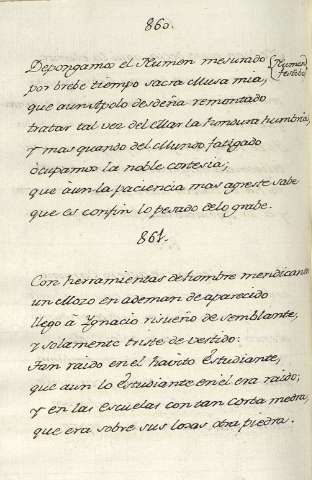 860.
Depongamos el Numen mesurado
{Numen
festibo
por brebe tiempo sacra Musa mia,
que aun Apolo desdeña remontado
tratar tal vez del Mar la hondura humbria,
y mas quando del Mundo fatigado
òcupamos la noble cortesia;
que aun la paciencia mas agreste sabe
que es confin lo pesado de lo grabe.
861.
Con herramientas de hombre mendicante
un Mozo en ademan de aparecido
llegò à Ygnacio risueño de semblante,
y solamente triste de vestido:
Tan raido en el habito Estudiante,
que aun lo Estudiante en èl era raido;
y en las Escuelas con tan corta medra,
que era sobre sus losas otra piedra.